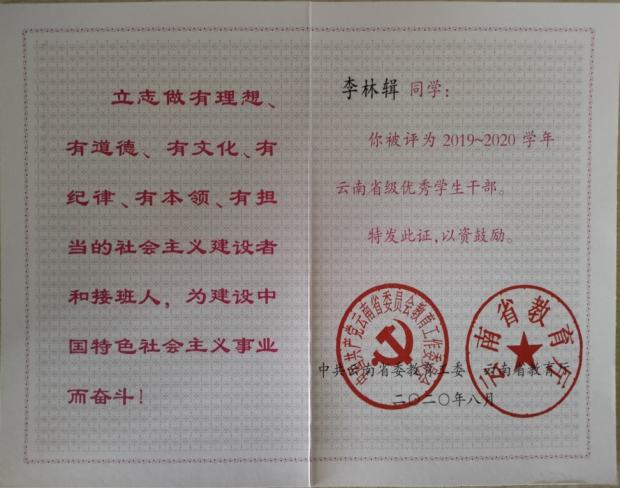 立志做有理想、
有道德、有文化、有
纪律、有本领、有担
当的社会主义建设者
和接班人，为建设中
国特色社会主义事业
而奋斗！
李林辑 同学：
你被评为 2019~2020 学年
云南省级优秀学生干部。
特发此证，以资鼓励。
中国共产党云南省委员会教育工作委员会
云南省教育厅
中共云南省委教育工委 云南省教育厅
二〇二〇年八月